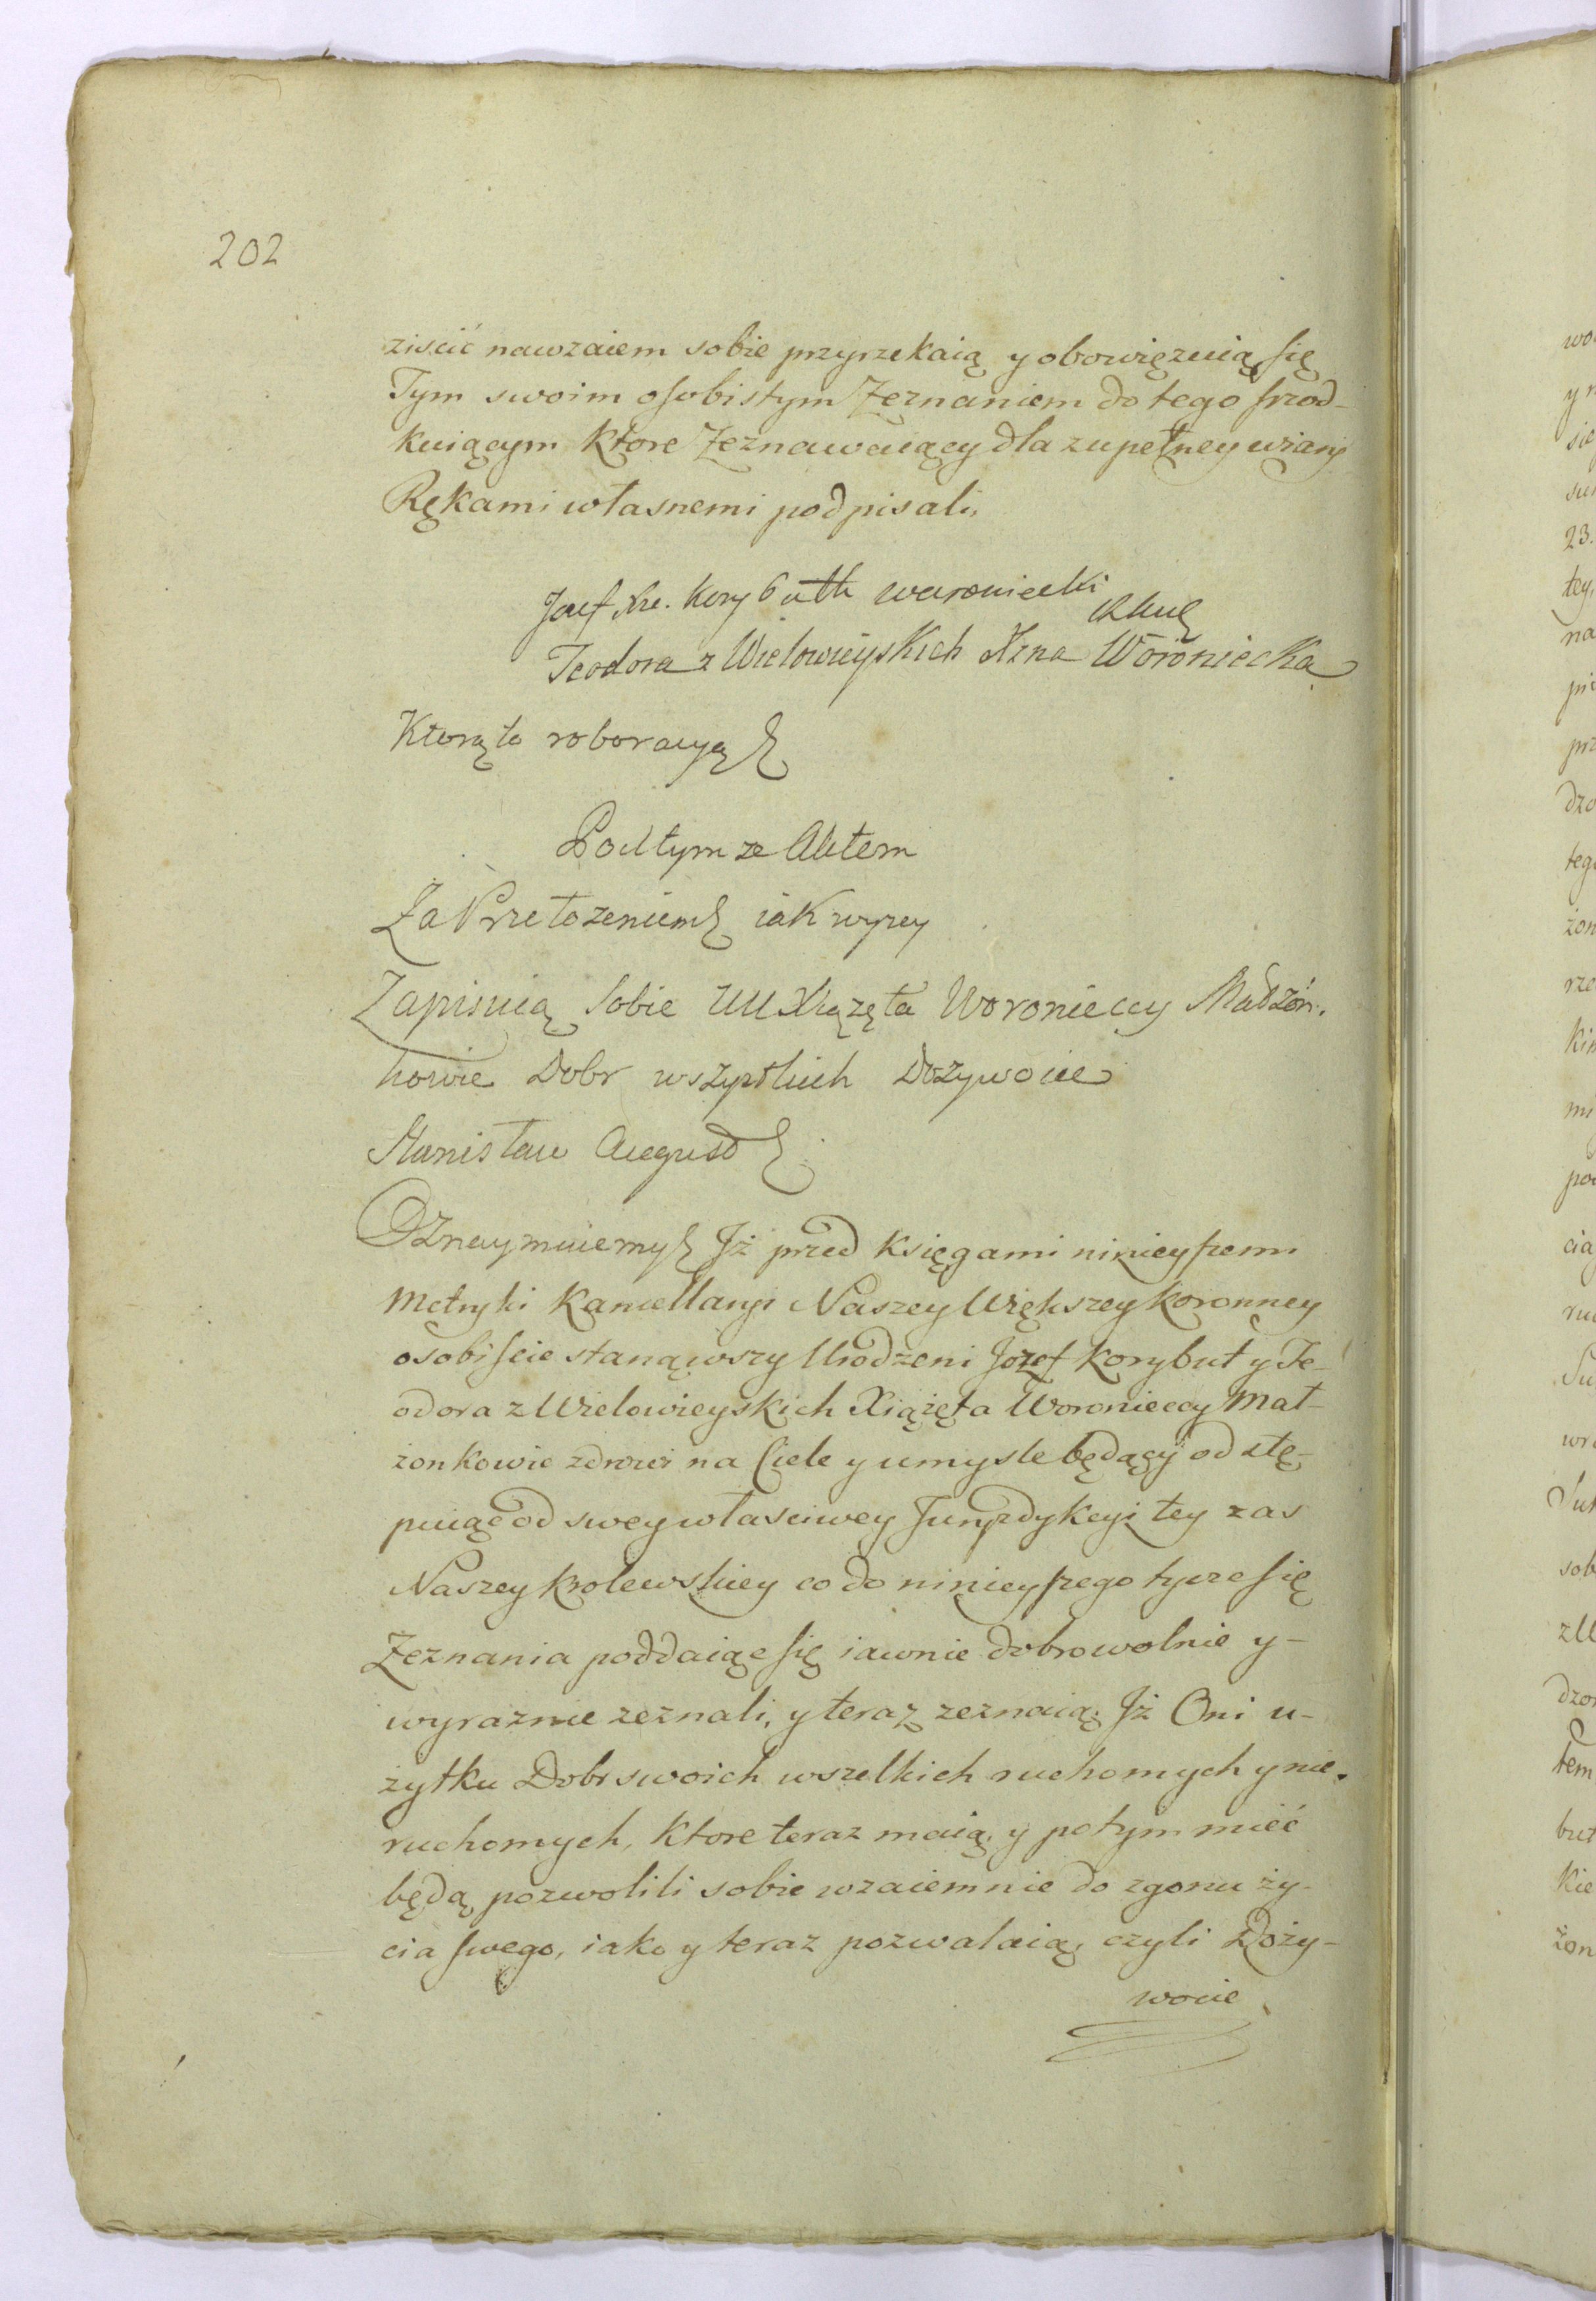 202
ziscić nawzaiem sobie przyrzekaią y obowięzuią się
Tym swoim osobistym Zeznaniem do tego srzod-
kuiącym które Zeznawaiący dla zupełney wiary
Rękami własnemi podpisali,
Jozef Xże. Korybutth woroniecki
Teodora z Wielowieyskich Xzna Woroniecka
Ktorą to roboracyą
Pod tym ze Aktem
Za Przełozeniem iak wyzey
Zapisuią sobie UU Xiązęta Woronieccy Małżon-
kowie Dobr wszystkich Dozywocie
Stanisław August
Oznaymuiemy Jż przed Księgami ninieyszemi
Metryki Kancellaryi Naszey Większey Koronney
osobiscie stanąwszy Urodzeni Jozef Korybut y Te-
odora z Wielowieyskich Xiążęta Woronieccy Mał-
zonkowie zdrowi na Ciele y umysle będący odstę-
puiąc od swey własciwey Juryzdykcyi tey zas
Naszey Krolewskiey co do ninieyszego tycze się
Zeznania poddaiąc się iawnie dobrowolnie y-
wyraznie zeznali, y teraz zeznaią; Jż Oni u-
zytku Dobr swoich wszelkich ruchomych y nie-
ruchomych, Ktore teraz maią, y potym mieć
będą pozwolili sobie wzaiemnie do zgonu ży-
cia swego, iako y teraz pozwalaią, czyli Doży-
wocie